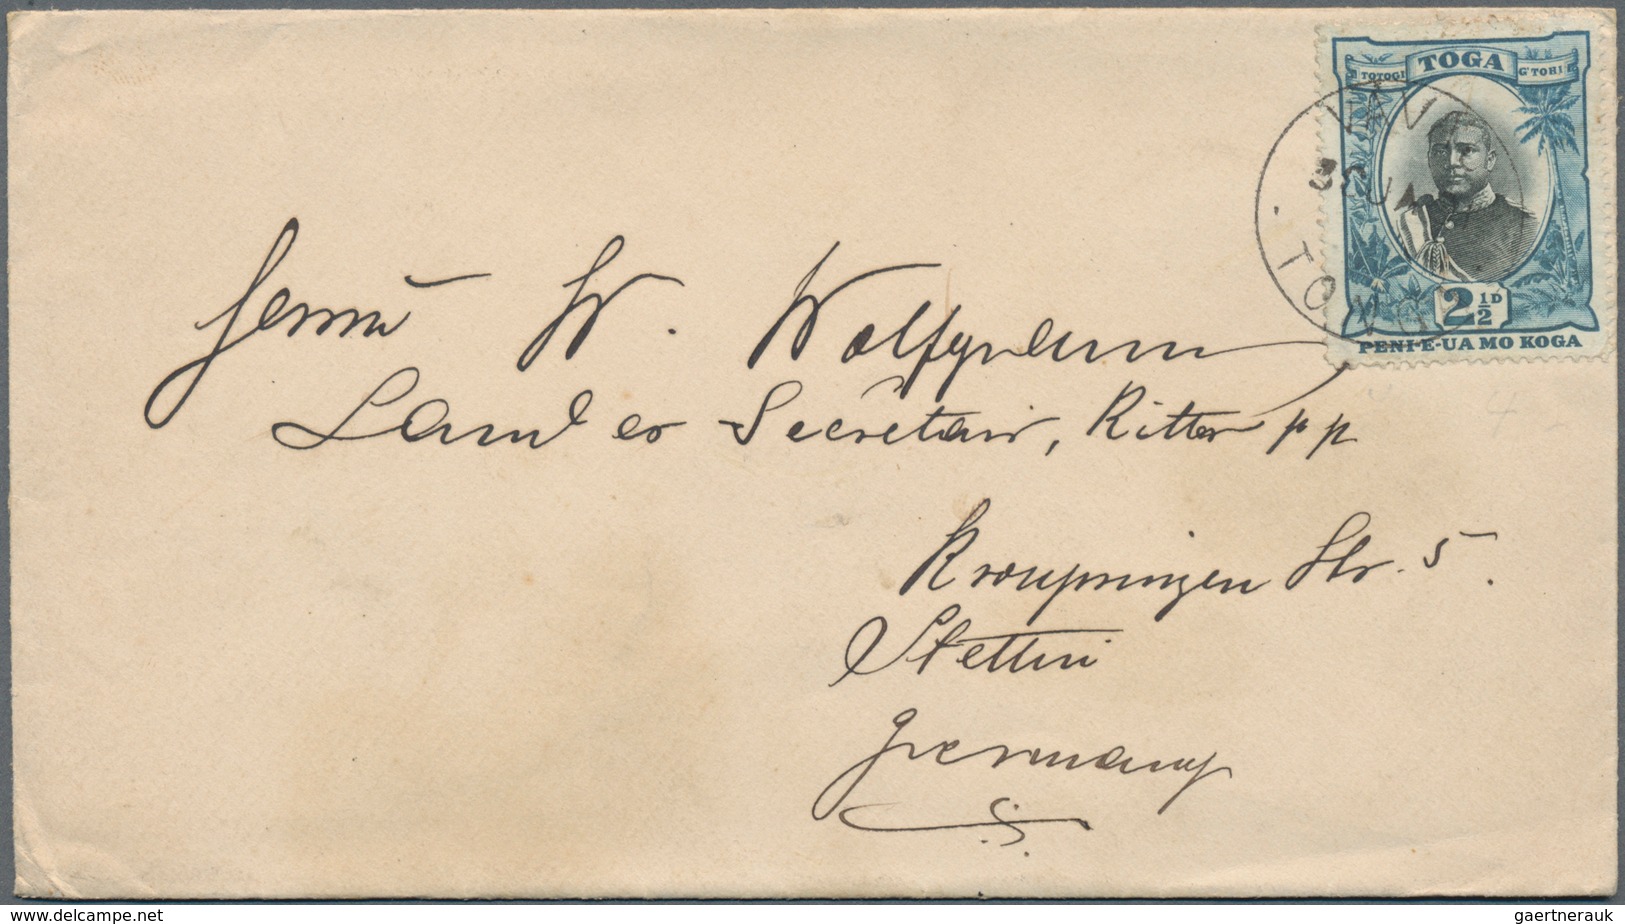 TOGA
TOTOGI G'TOHI
2 ½ D
PENI-E-UA MO KOGA
TONGA
Herrn W. Wolfgramm
Landes Secretair, Ritter pp
Kronprinzen Str. 5.
Stettin
Germany
delcampe.net
gaertnerauk